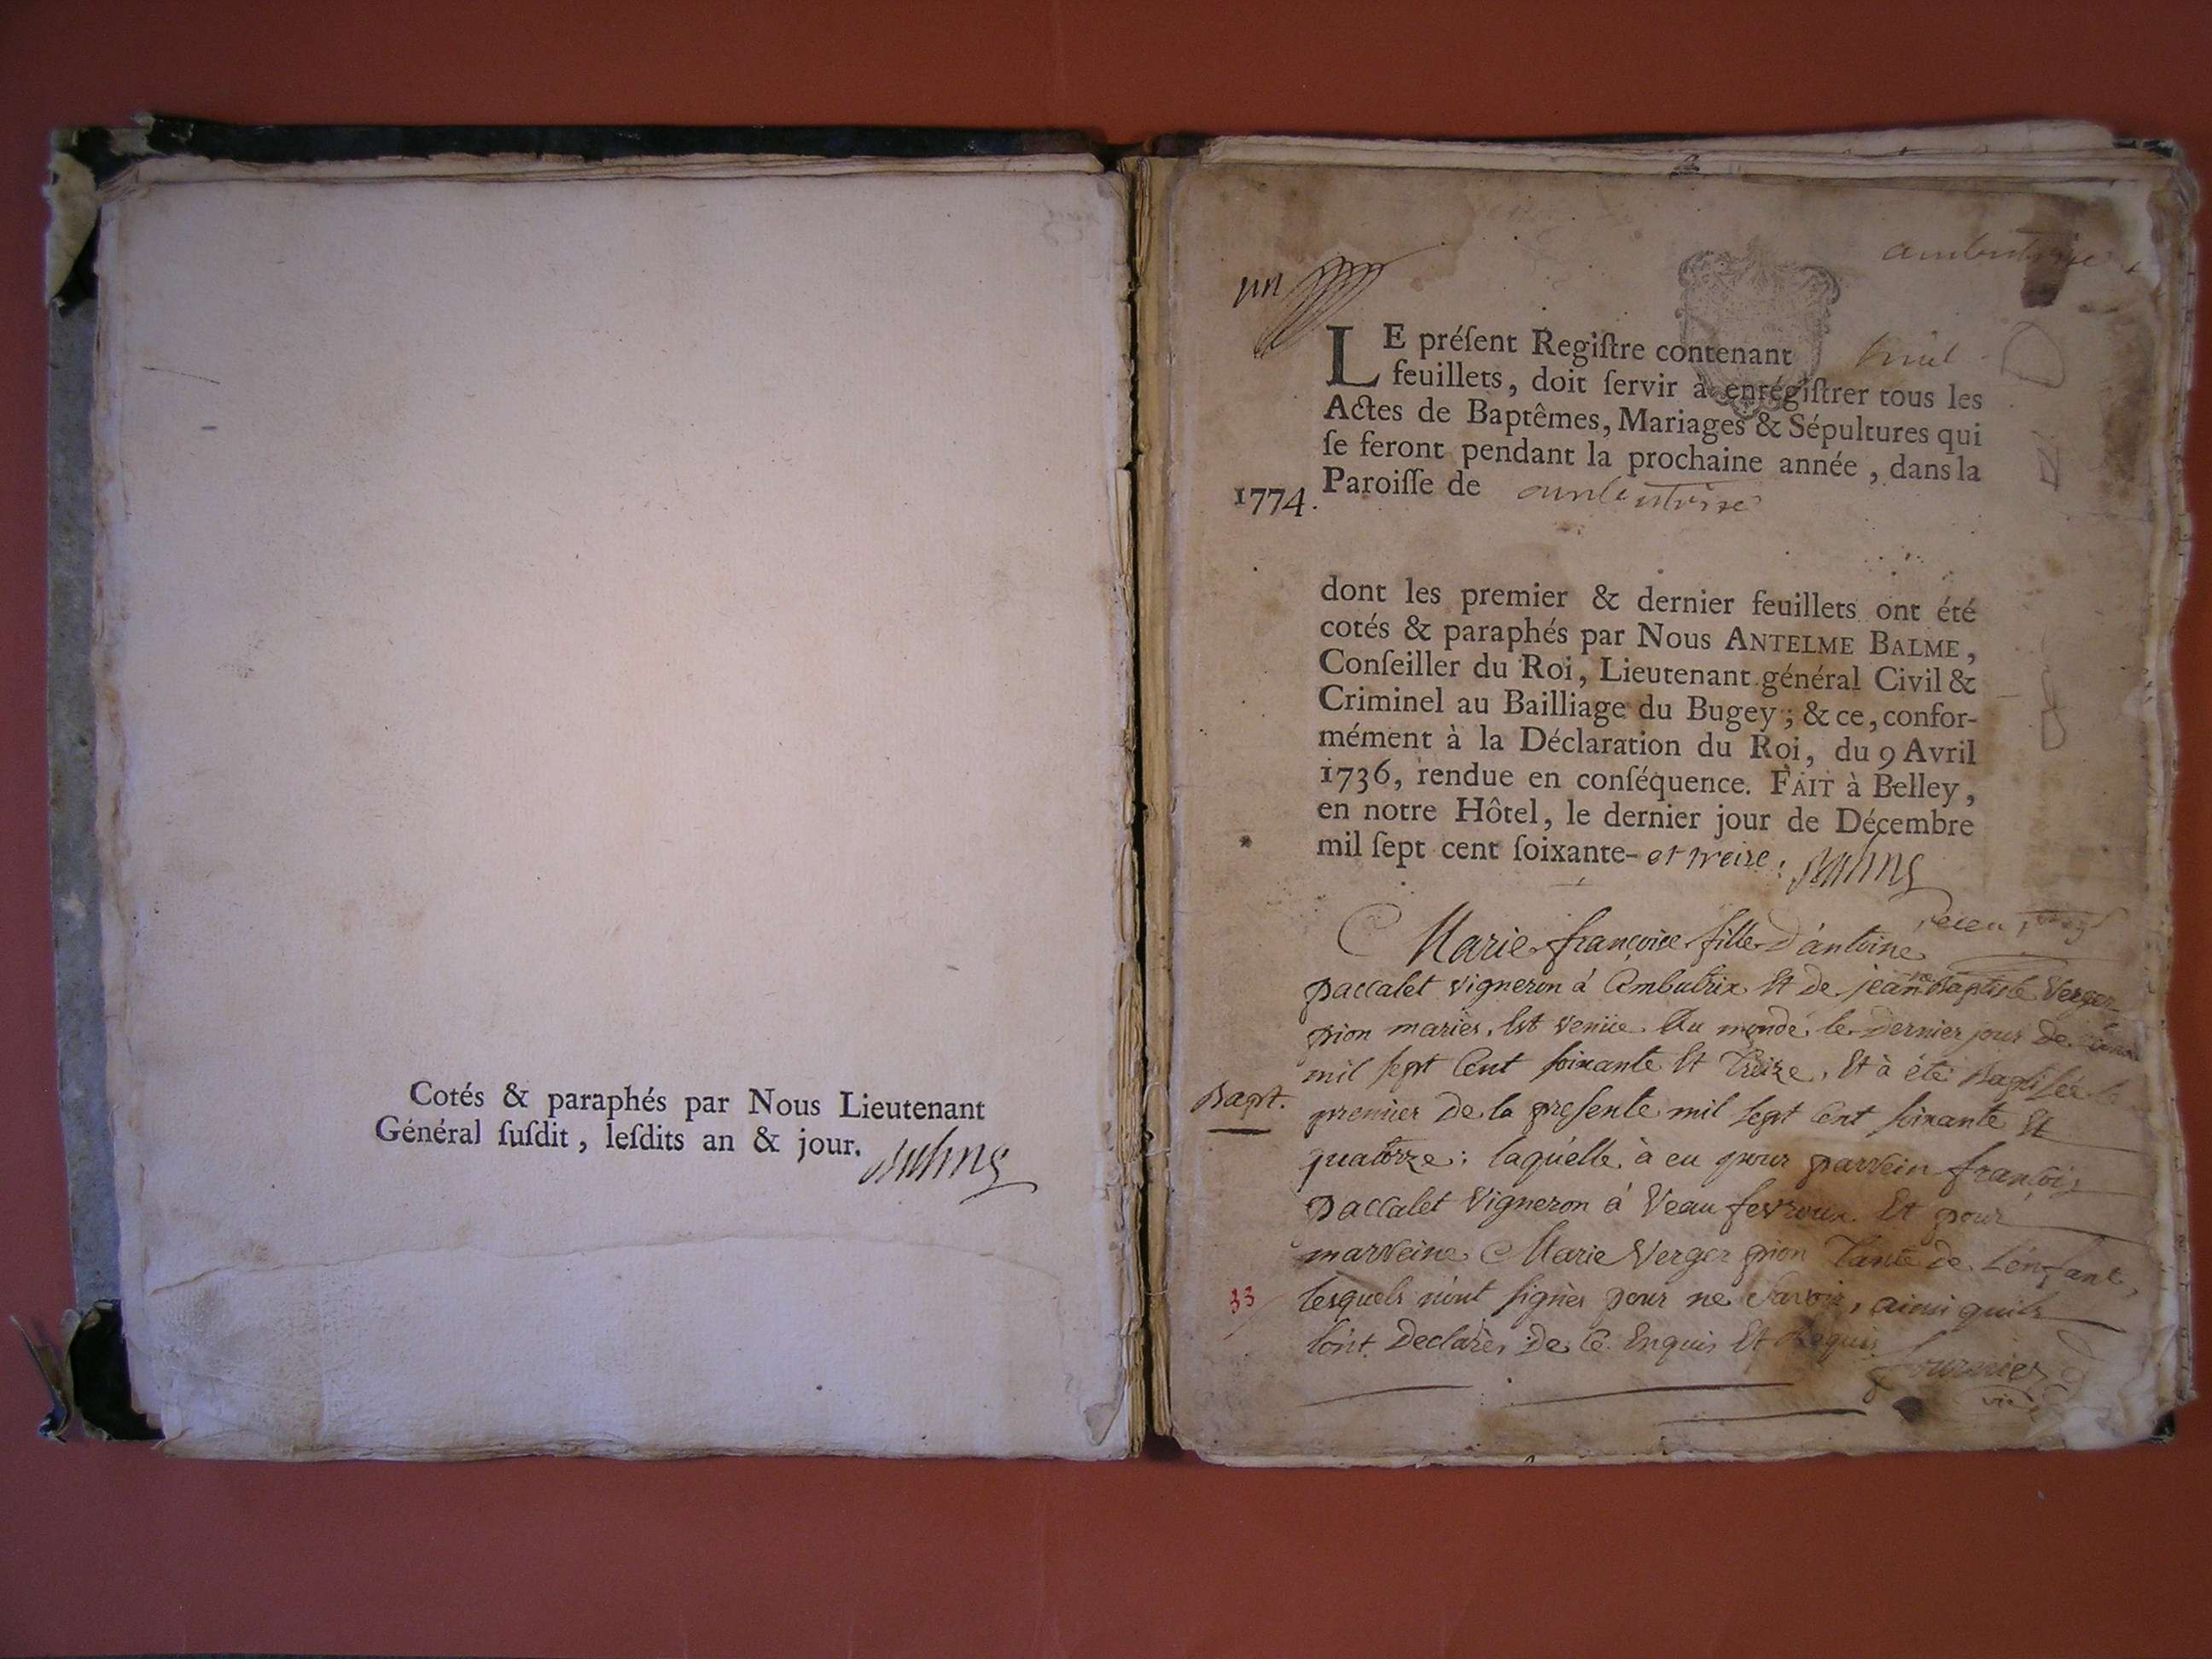 Cotés & paraphés par Nous Lieutenant
Général ſuſdit, leſdits an & jour.
un
LE préſent Regiſtre contenant huit
feuillets, doit ſervir à enrégiſtrer tous les
Actes de Baptêmes, Mariages & Sépultures qui
ſe feront pendant la prochaine année, dans la
1774. Paroiſſe de ambutrix
dont les premier & dernier feuillets ont été
cotés & paraphés par Nous ANTELME BALME,
Conſeiller du Roi, Lieutenant général Civil &
Criminel au Bailliage du Bugey; & ce, confor-
mément à la Déclaration du Roi, du 9 Avril
1736, rendue en conſéquence. FAIT à Belley,
en notre Hôtel, le dernier jour de Décembre
mil ſept cent ſoixante- et treize.
Marie françoise fille d'antoine
paccalet vigneron à Ambutrix Et de jeanne Baptiste Verger
pion mariés, Est venüe Au monde le dernier jour de
mil sept Cent soixante Et Treize, Et à été Baptisée le
Bapt. premier de la presente mil sept Cent soixante Et
quatorze: laquelle à eu pour parrein françois
paccalet Vigneron à Veau fevroux Et pour
marreine Marie Verger pion Tante de L'enfant,
33 lesquels n'ont signés pour ne Savoir, ainsi quils
l'ont Declarés de Ce Enquis Et Requis
fournier